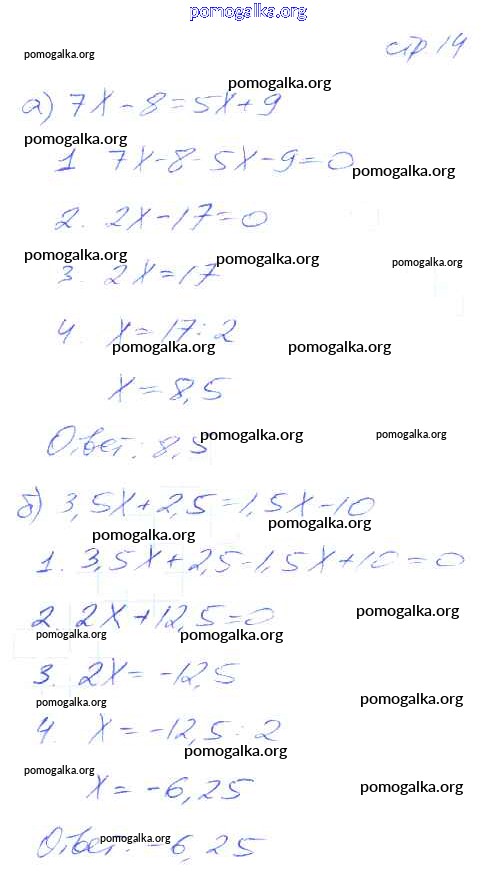 pomogalka.org
стр 14
pomogalka.org
pomogalka.org
а) 7x - 8 = 5x + 9
pomogalka.org
1 7x - 8 - 5x - 9 = 0
pomogalka.org
2. 2x - 17 = 0
pomogalka.org pomogalka.org pomogalka.org
3. 2x = 17
4. x = 17 : 2
pomogalka.org pomogalka.org
x = 8,5
Ответ: 8,5
pomogalka.org pomogalka.org
б) 3,5x + 2,5 = 1,5x - 10
pomogalka.org
pomogalka.org
1. 3,5x + 2,5 - 1,5x + 10 = 0
2. 2x + 12,5 = 0
pomogalka.org
pomogalka.org pomogalka.org
3. 2x = -12,5
pomogalka.org pomogalka.org
4. x = -12,5 : 2
pomogalka.org
pomogalka.org
x = -6,25
pomogalka.org
Ответ: -6,25
pomogalka.org